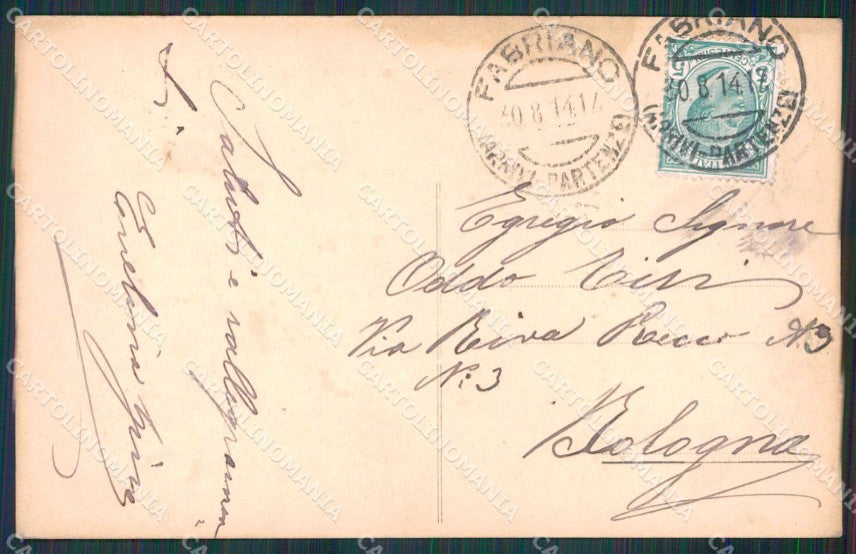 FABRIANO
30 8 14.17
(ARRIVI-PARTENZE)
FABRIANO
30 8 14.17
(ARRIVI-PARTENZE)
Egregio Signore
Oddo
Via Riva Recco N3
N: 3
Bologna
Saluti e rallegramenti
Evelina
CARTOLINOMANIA